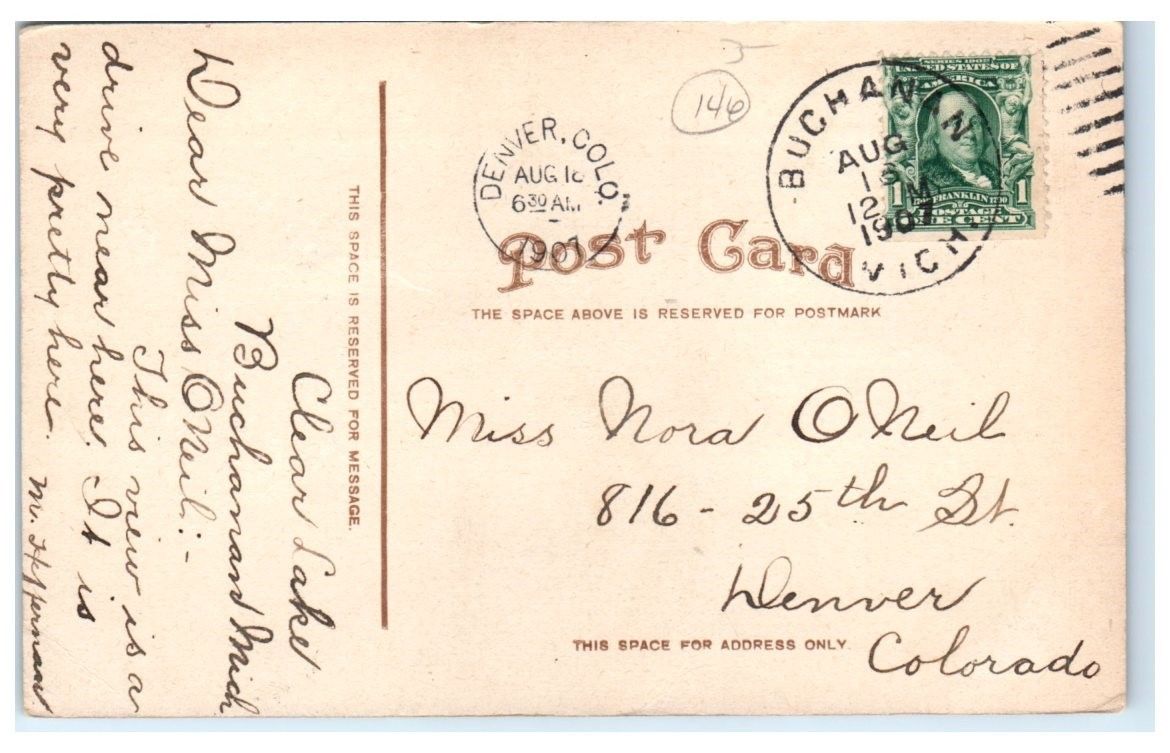 Clear Lake
Buchanan Mich
Dear Miss O'Neil:-
This view is a
drive near here. It is
very pretty here.
M. Heffernan
THIS SPACE IS RESERVED FOR MESSAGE.
5
146
DENVER, COLO.
AUG 18
6 30 AM
1907
BUCHANAN
AUG
16
12 M
1907
MICH.
SERIES 1902
UNITED STATES OF
AMERICA
1 FRANKLIN 1
POSTAGE
ONE CENT
Post Card
THE SPACE ABOVE IS RESERVED FOR POSTMARK
Miss Nora O'Neil
816 - 25th St.
Denver
Colorado
THIS SPACE FOR ADDRESS ONLY.